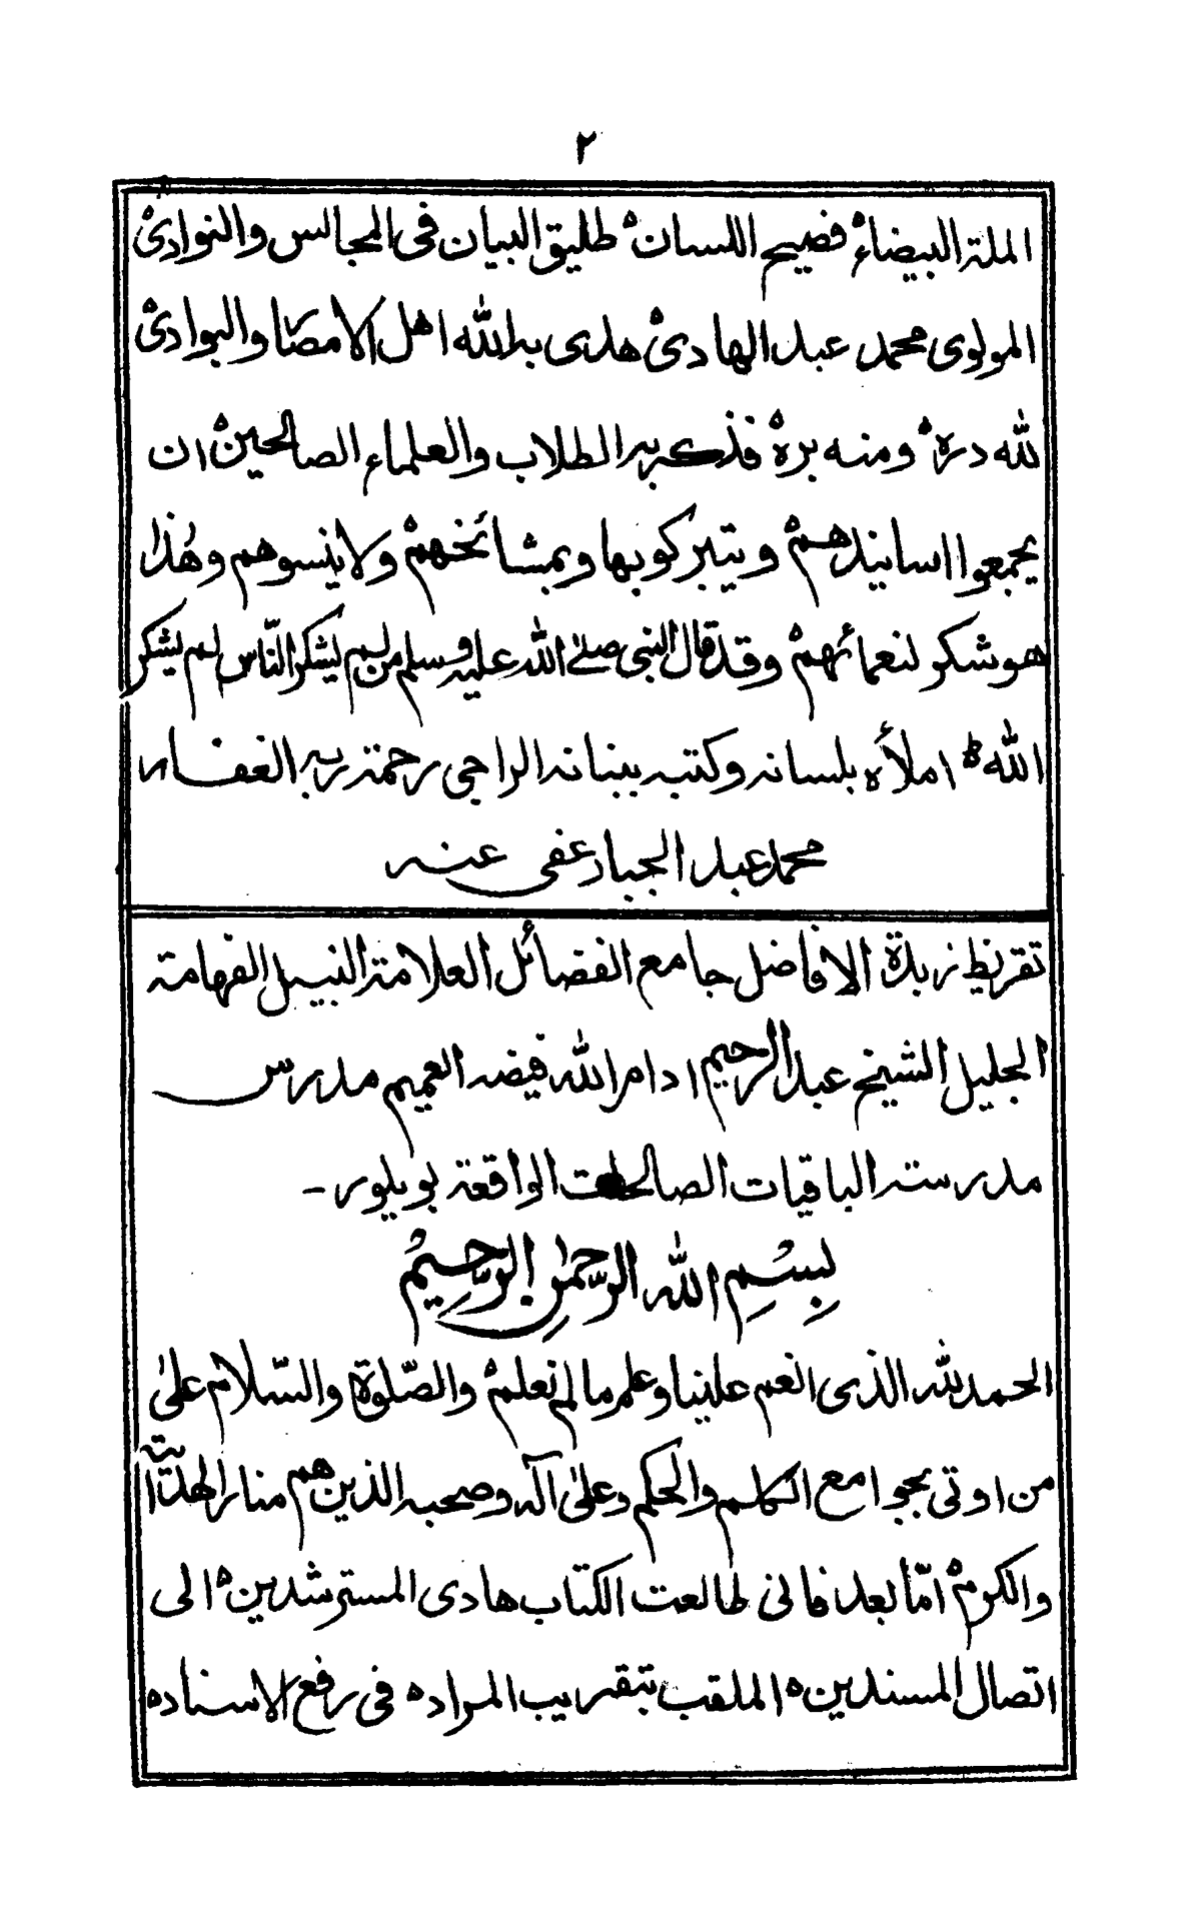 ٢
الملة البيضاء۵ فصيح اللسان۵ طليق البيان فى المجالس والنوادى۵
المولوى محمد عبد الهادى۵ هدى به الله اهل الامصار والبوادى۵
لله دره۵ ومنه بره۵ فذكر به الطلاب والعلماء الصالحين۵ ان
يجمعوا اسانيدهم۵ ويتبركوا بها وبمشائخهم۵ ولا ينسوهم وهذا
هو شكر لنعمائهم۵ وقد قال النبى صلى الله عليه وسلم من لم يشكر النّاس لم يشكر
الله ط املأه بلسانه وكتبه ببنانه الراجى رحمة ربه الغفار
محمد عبد الجبار عفى عنه
تقريظ زبدة الافاضل جامع الفضائل العلامة النبيل الفهامة
الجليل الشيخ عبد الرحيم ادام الله فيضه العميم مدرس
مدرسة الباقيات الصالحات الواقعة بويلور -
بِسْمِ الله الرّحمٰنِ الرّحِيْمِ
الحمد لله الذى انعم علينا وعلم ما لم نعلم۵ والصّلوة والسّلام علىٰ
من اوتى بجوامع الكلم والحكم وعلىٰ آله وصحبه الذين هم منار الهداية
والكرم۵ امّا بعد فانى طالعت الكتاب هادى المسترشدين۵ الى
اتصال المسندين۵ الملقب بتقريب المراد۵ فى رفع الاسناد۵